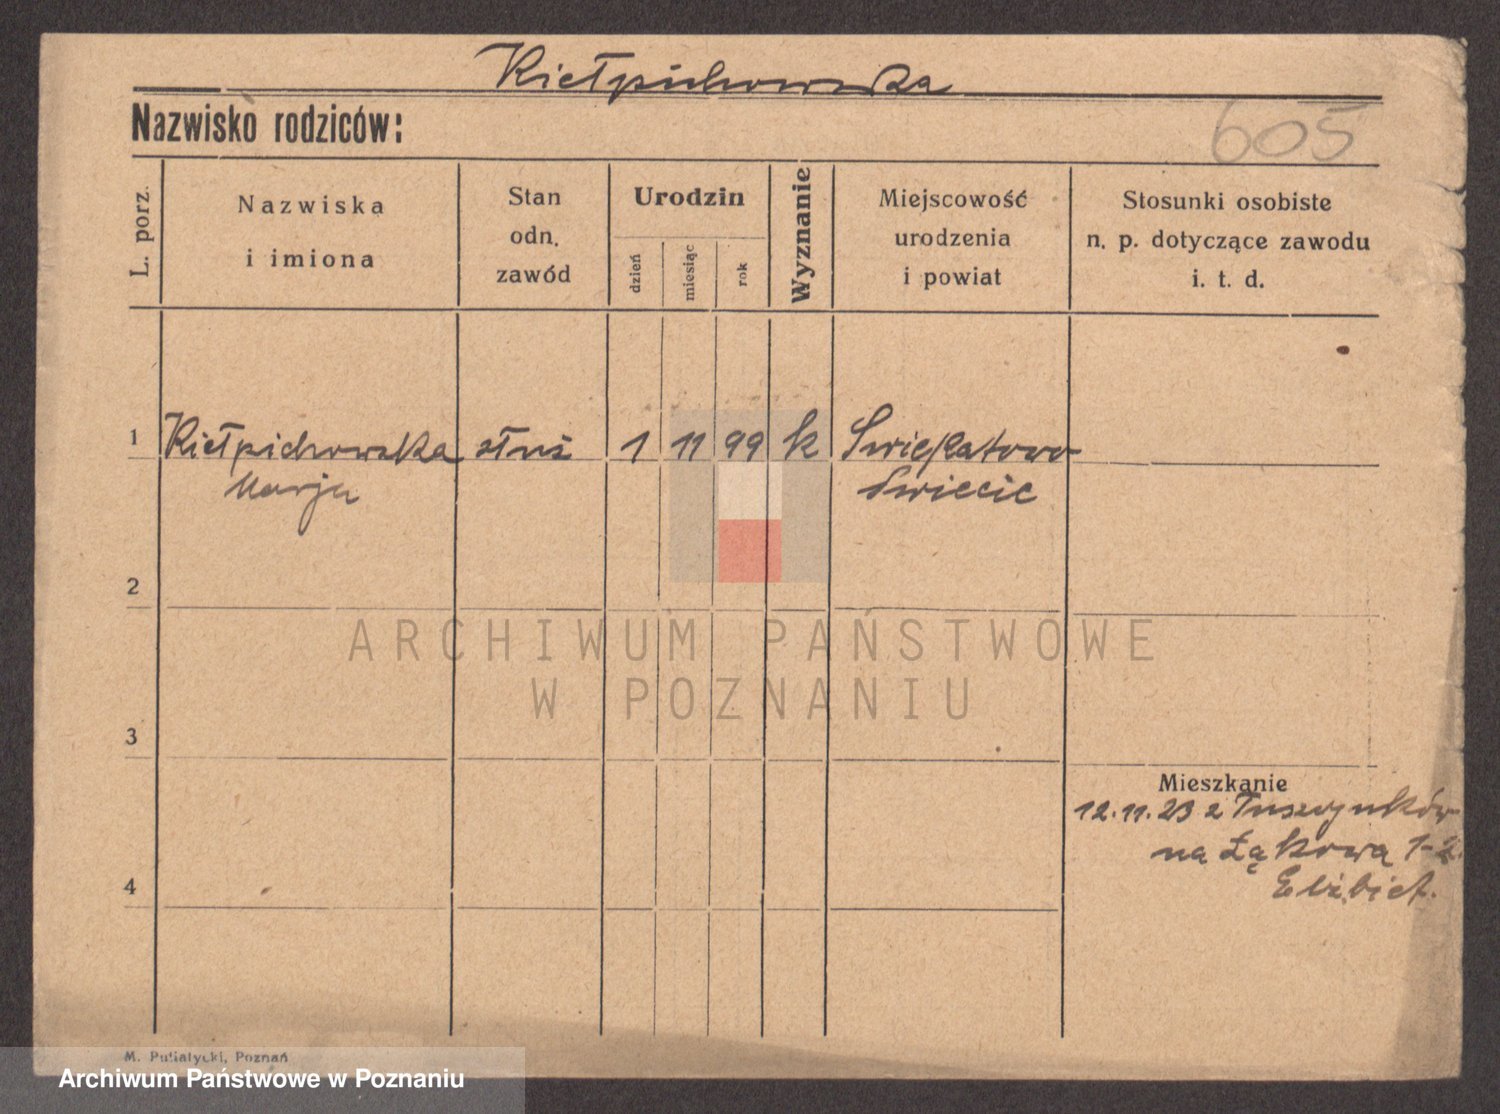 Kiełpichowska
Nazwisko rodziców:
605
L. porz.
Nazwiska
i imiona
Stan
odn.
zawód
Urodzin
dzień
miesiąc
rok
Wyznanie
Miejscowość
urodzenia
i powiat
Stosunki osobiste
n. p. dotyczące zawodu
i. t. d.
1 Kiełpichowska służ 1 11 99 k Swiekatowo
Marja Swiecie
2
ARCHIWUM PAŃSTWOWE
W POZNANIU
3
Mieszkanie
12.11.23 z
na Łąkową 1-2
4
Elżbiet.
M. Putiatycki, Poznań
Archiwum Państwowe w Poznaniu